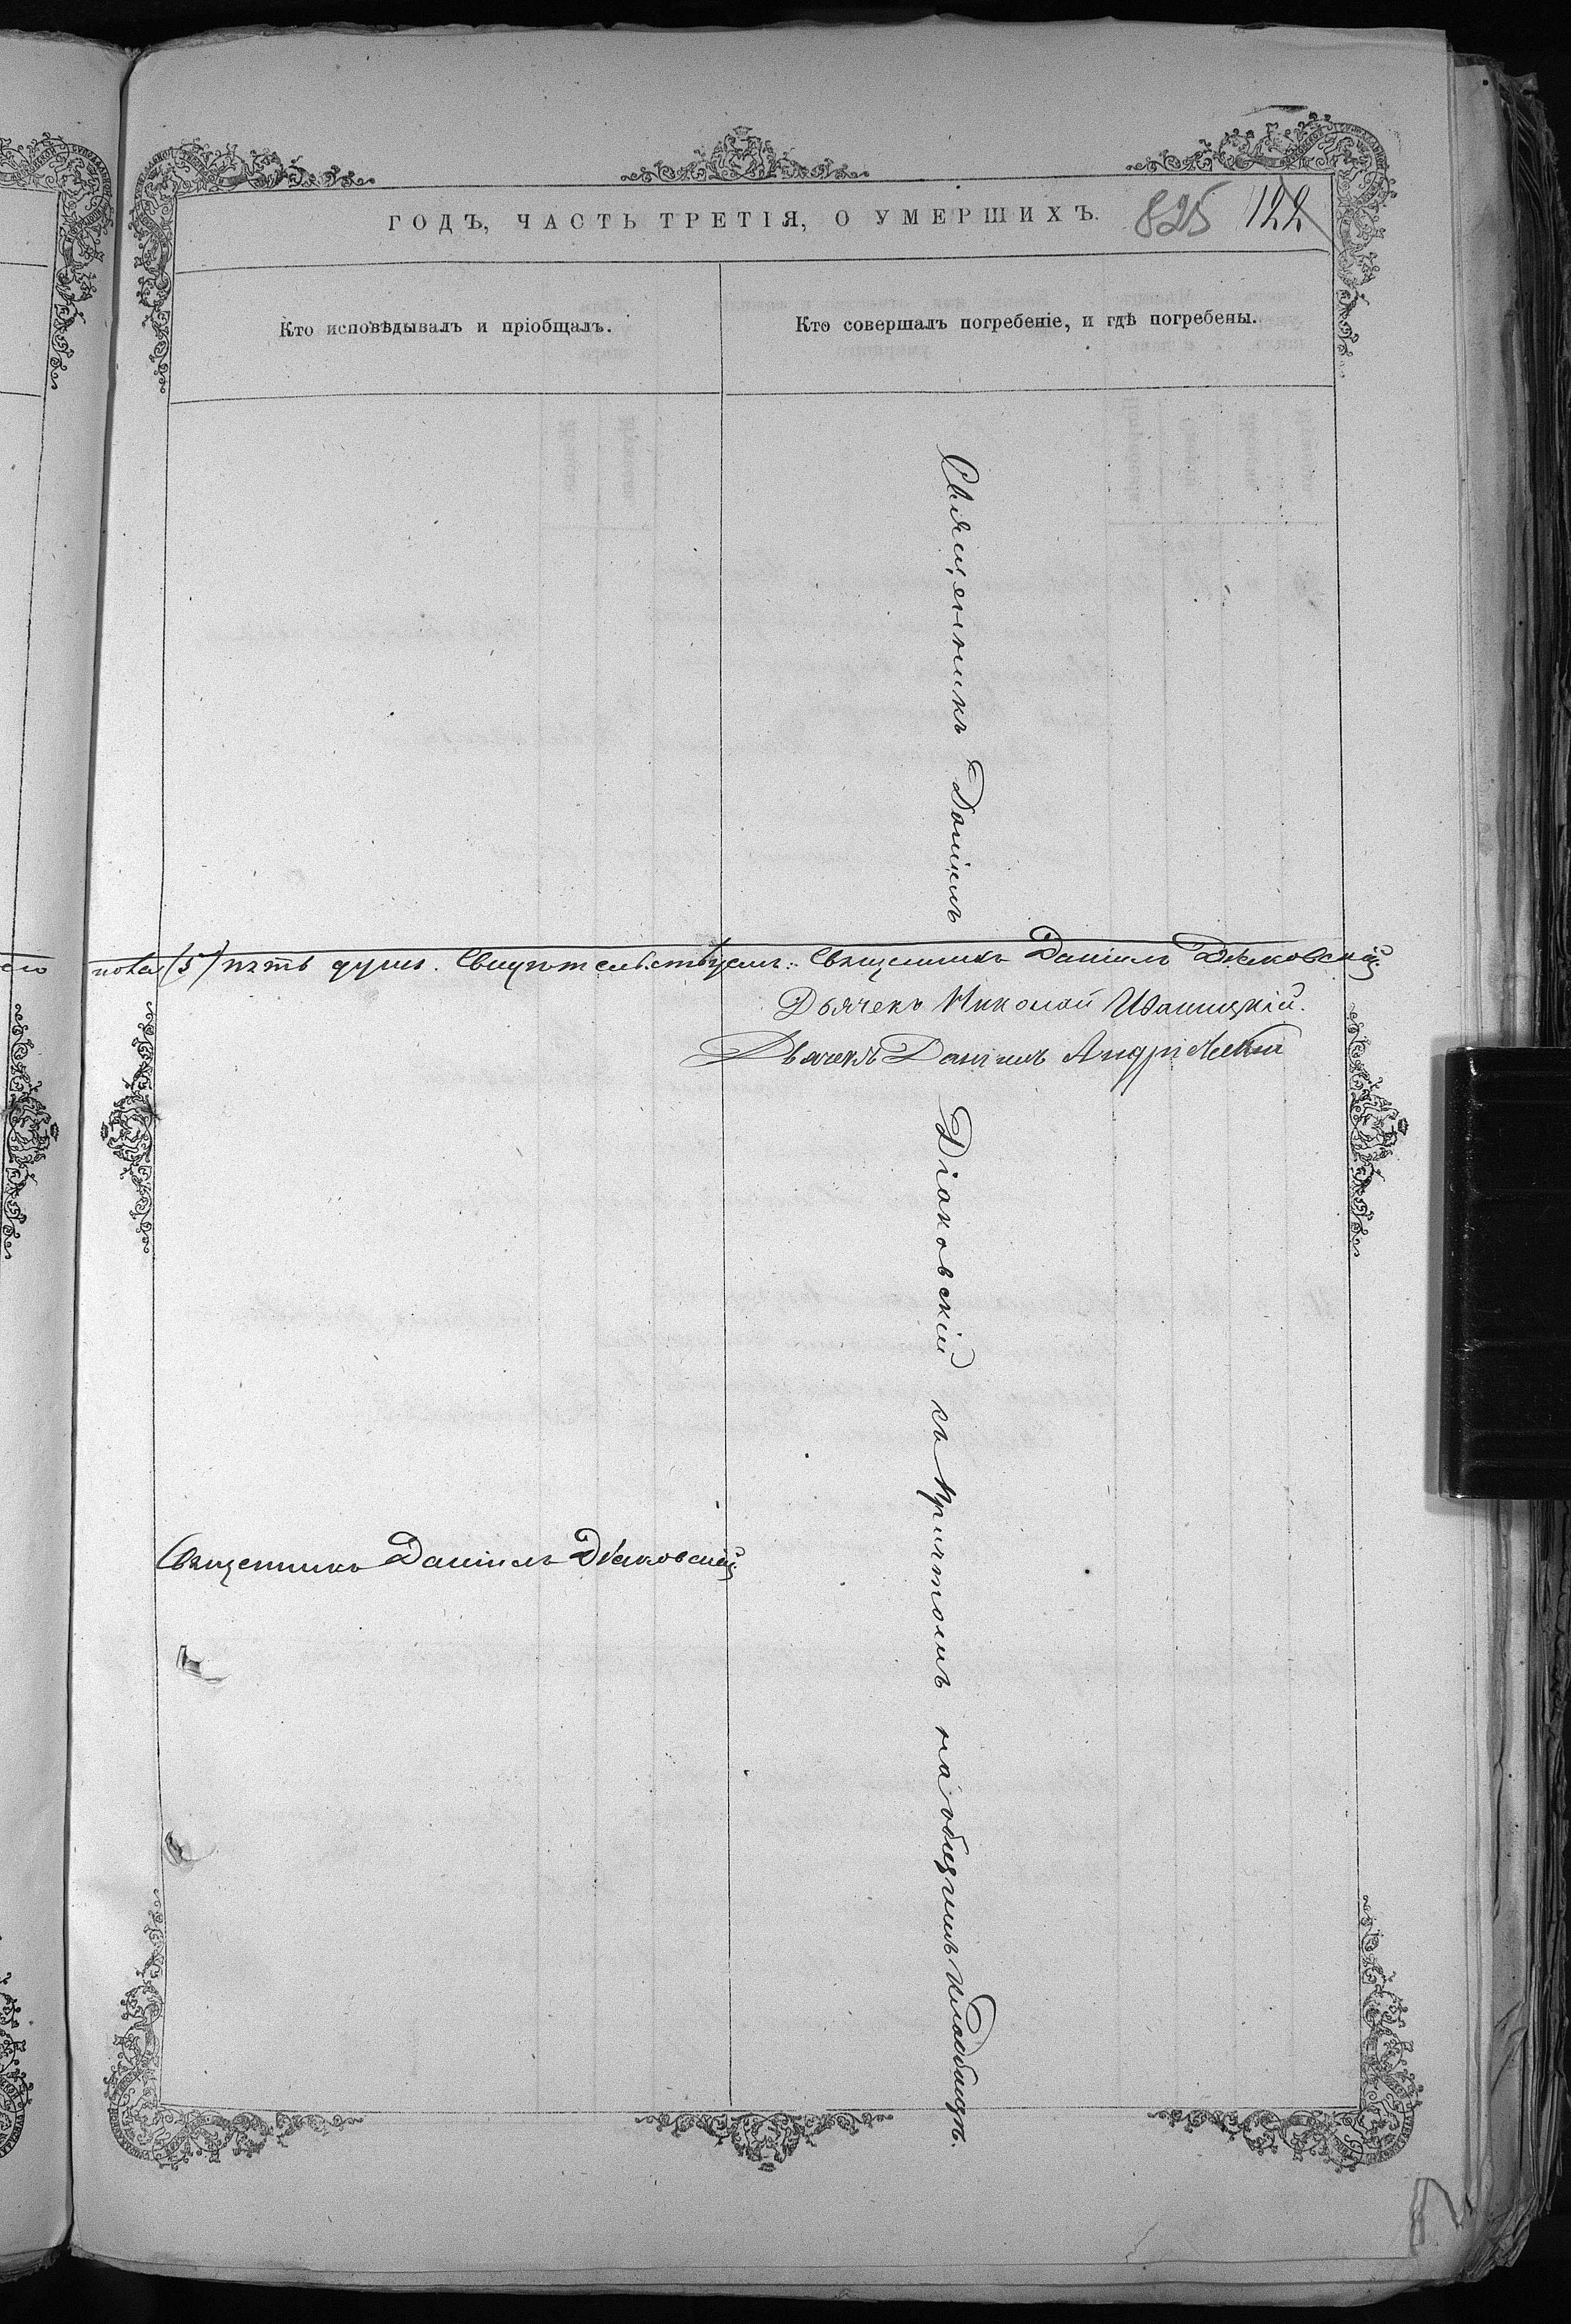 ГОДЪ, ЧАСТЬ ТРЕТІЯ, О УМЕРШИХЪ. 825 122
Кто исповѣдывалъ и пріобщалъ.
Кто совершалъ погребеніе, и гдѣ погребены.
Священникъ Даніилъ Діаковскій съ Причтомъ на общемъ кладбищѣ.
пола (5) пять душъ. Свидѣтельствуемъ: Священникъ Даніилъ Дьяковскій.
Дьячекъ Николай Иваницкій.
Дьячекъ Даніилъ
Священникъ Даніилъ Дьяковскій.